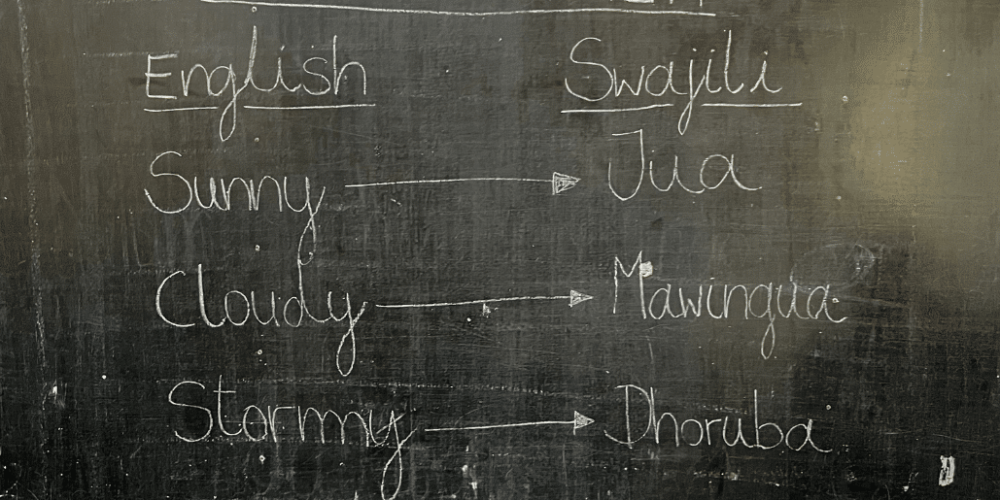 English Swajili
Sunny → Jua
Cloudy → Mawingua
Stormy → Dhoruba